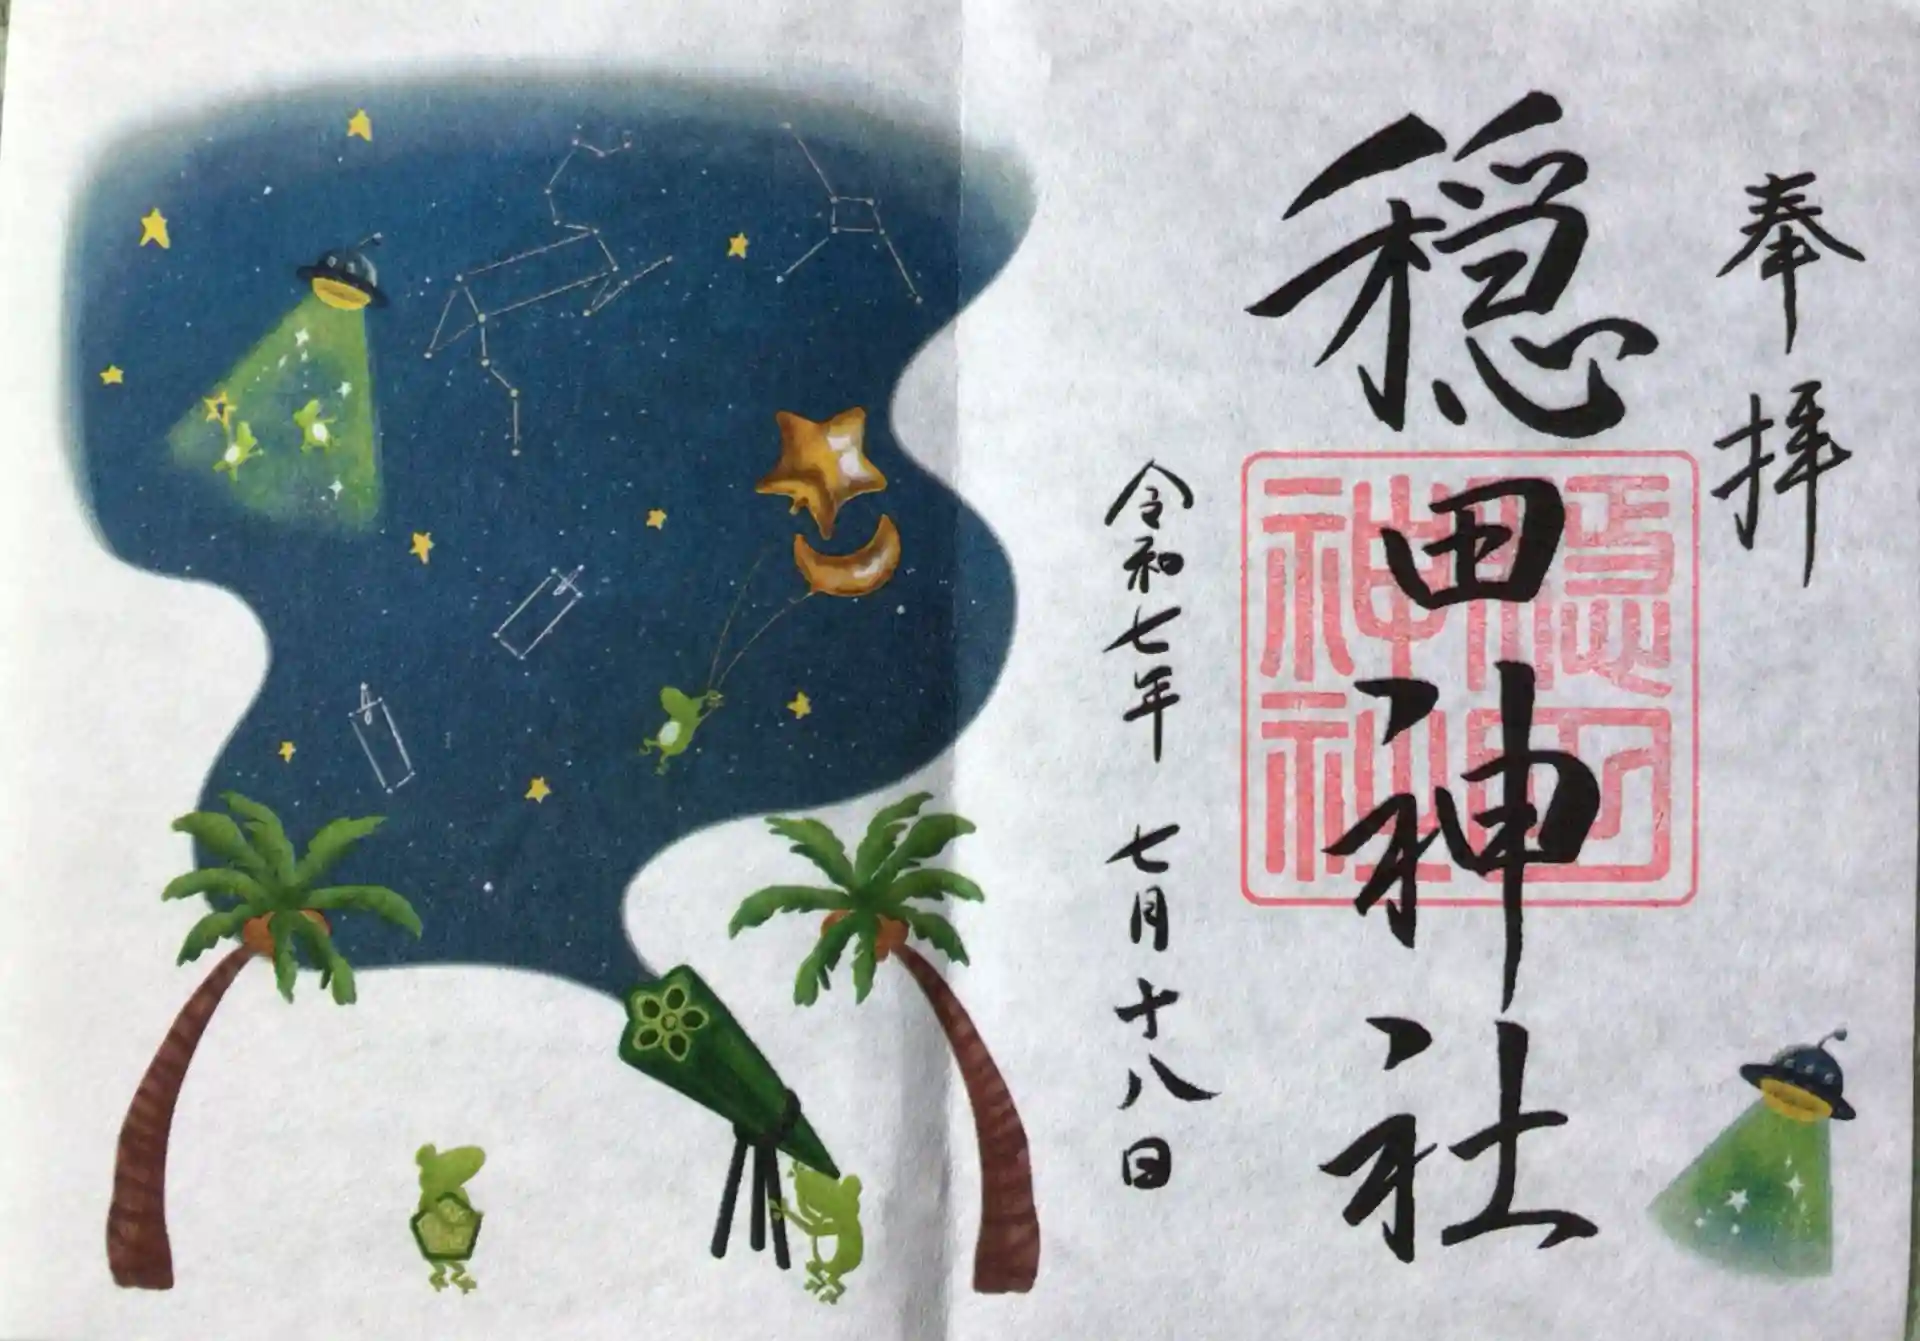 奉拝
穏田神社
穏田神社
令和七年 七月十八日